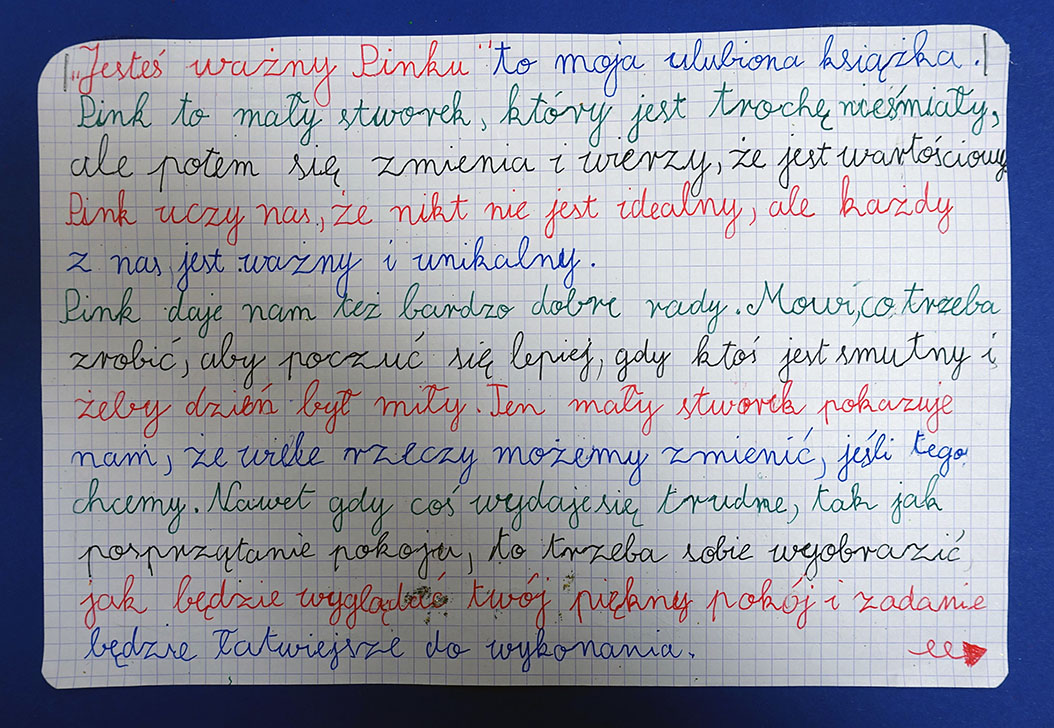 "Jesteś ważny Pinku" to moja ulubiona książka.
Pink to mały stworek, który jest trochę nieśmiały,
ale potem się zmienia i wierzy, że jest wartościowy
Pink uczy nas, że nikt nie jest idealny, ale każdy
z nas jest ważny i unikalny.
Pink daje nam też bardzo dobre rady. Mowi, co trzeba
zrobić, aby poczuć się lepiej, gdy ktoś jest smutny i
żeby dzień był miły. Ten mały stworek pokazuje
nam, że wiele rzeczy możemy zmienić, jeśli tego
chcemy. Nawet gdy coś wydaje się trudne, tak jak
posprzątanie pokoju, to trzeba sobie wyobrazić
jak będzie wyglądać twój piękny pokój i zadanie
będzie łatwiejsze do wykonania.